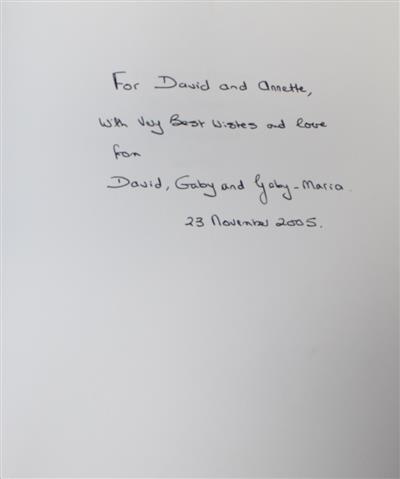 For David and Annette,
With Very Best Wishes and love
from
David, Gaby and Gaby-Maria.
23 November 2005.